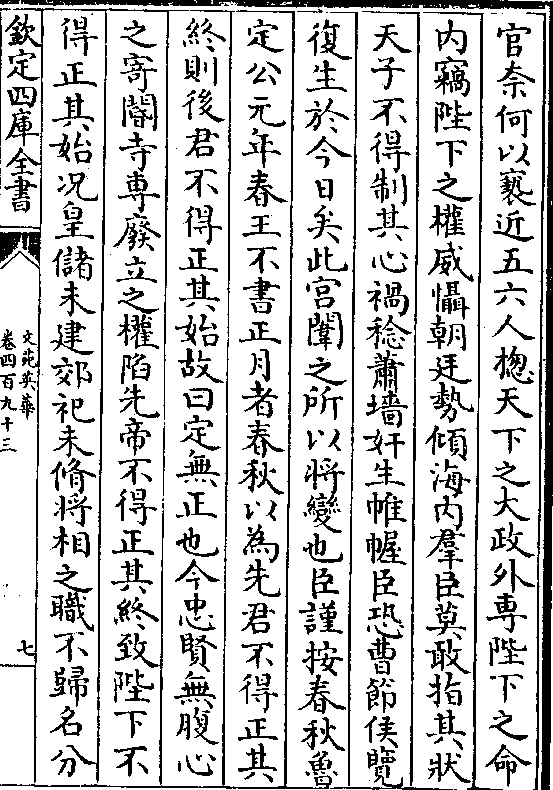 官奈何以褻近五六人緫天下之大政外専陛下之命
内竊陛下之權威懾朝廷勢傾海内羣臣莫敢指其狀
天子不得制其心禍稔蕭墻奸生帷幄臣恐曹節侯覽
復生於今日矣此宫闈之所以將變也臣謹按春秋魯
定公元年春王不書正月者春秋以為先君不得正其
終則後君不得正其始故曰定無正也今忠賢無腹心
之寄閽寺専廢立之權陷先帝不得正其終致陛下不
得正其始况皇儲未建郊祀未脩將相之職不歸名分
欽定四庫全書
文苑英華
卷四百九十三
七